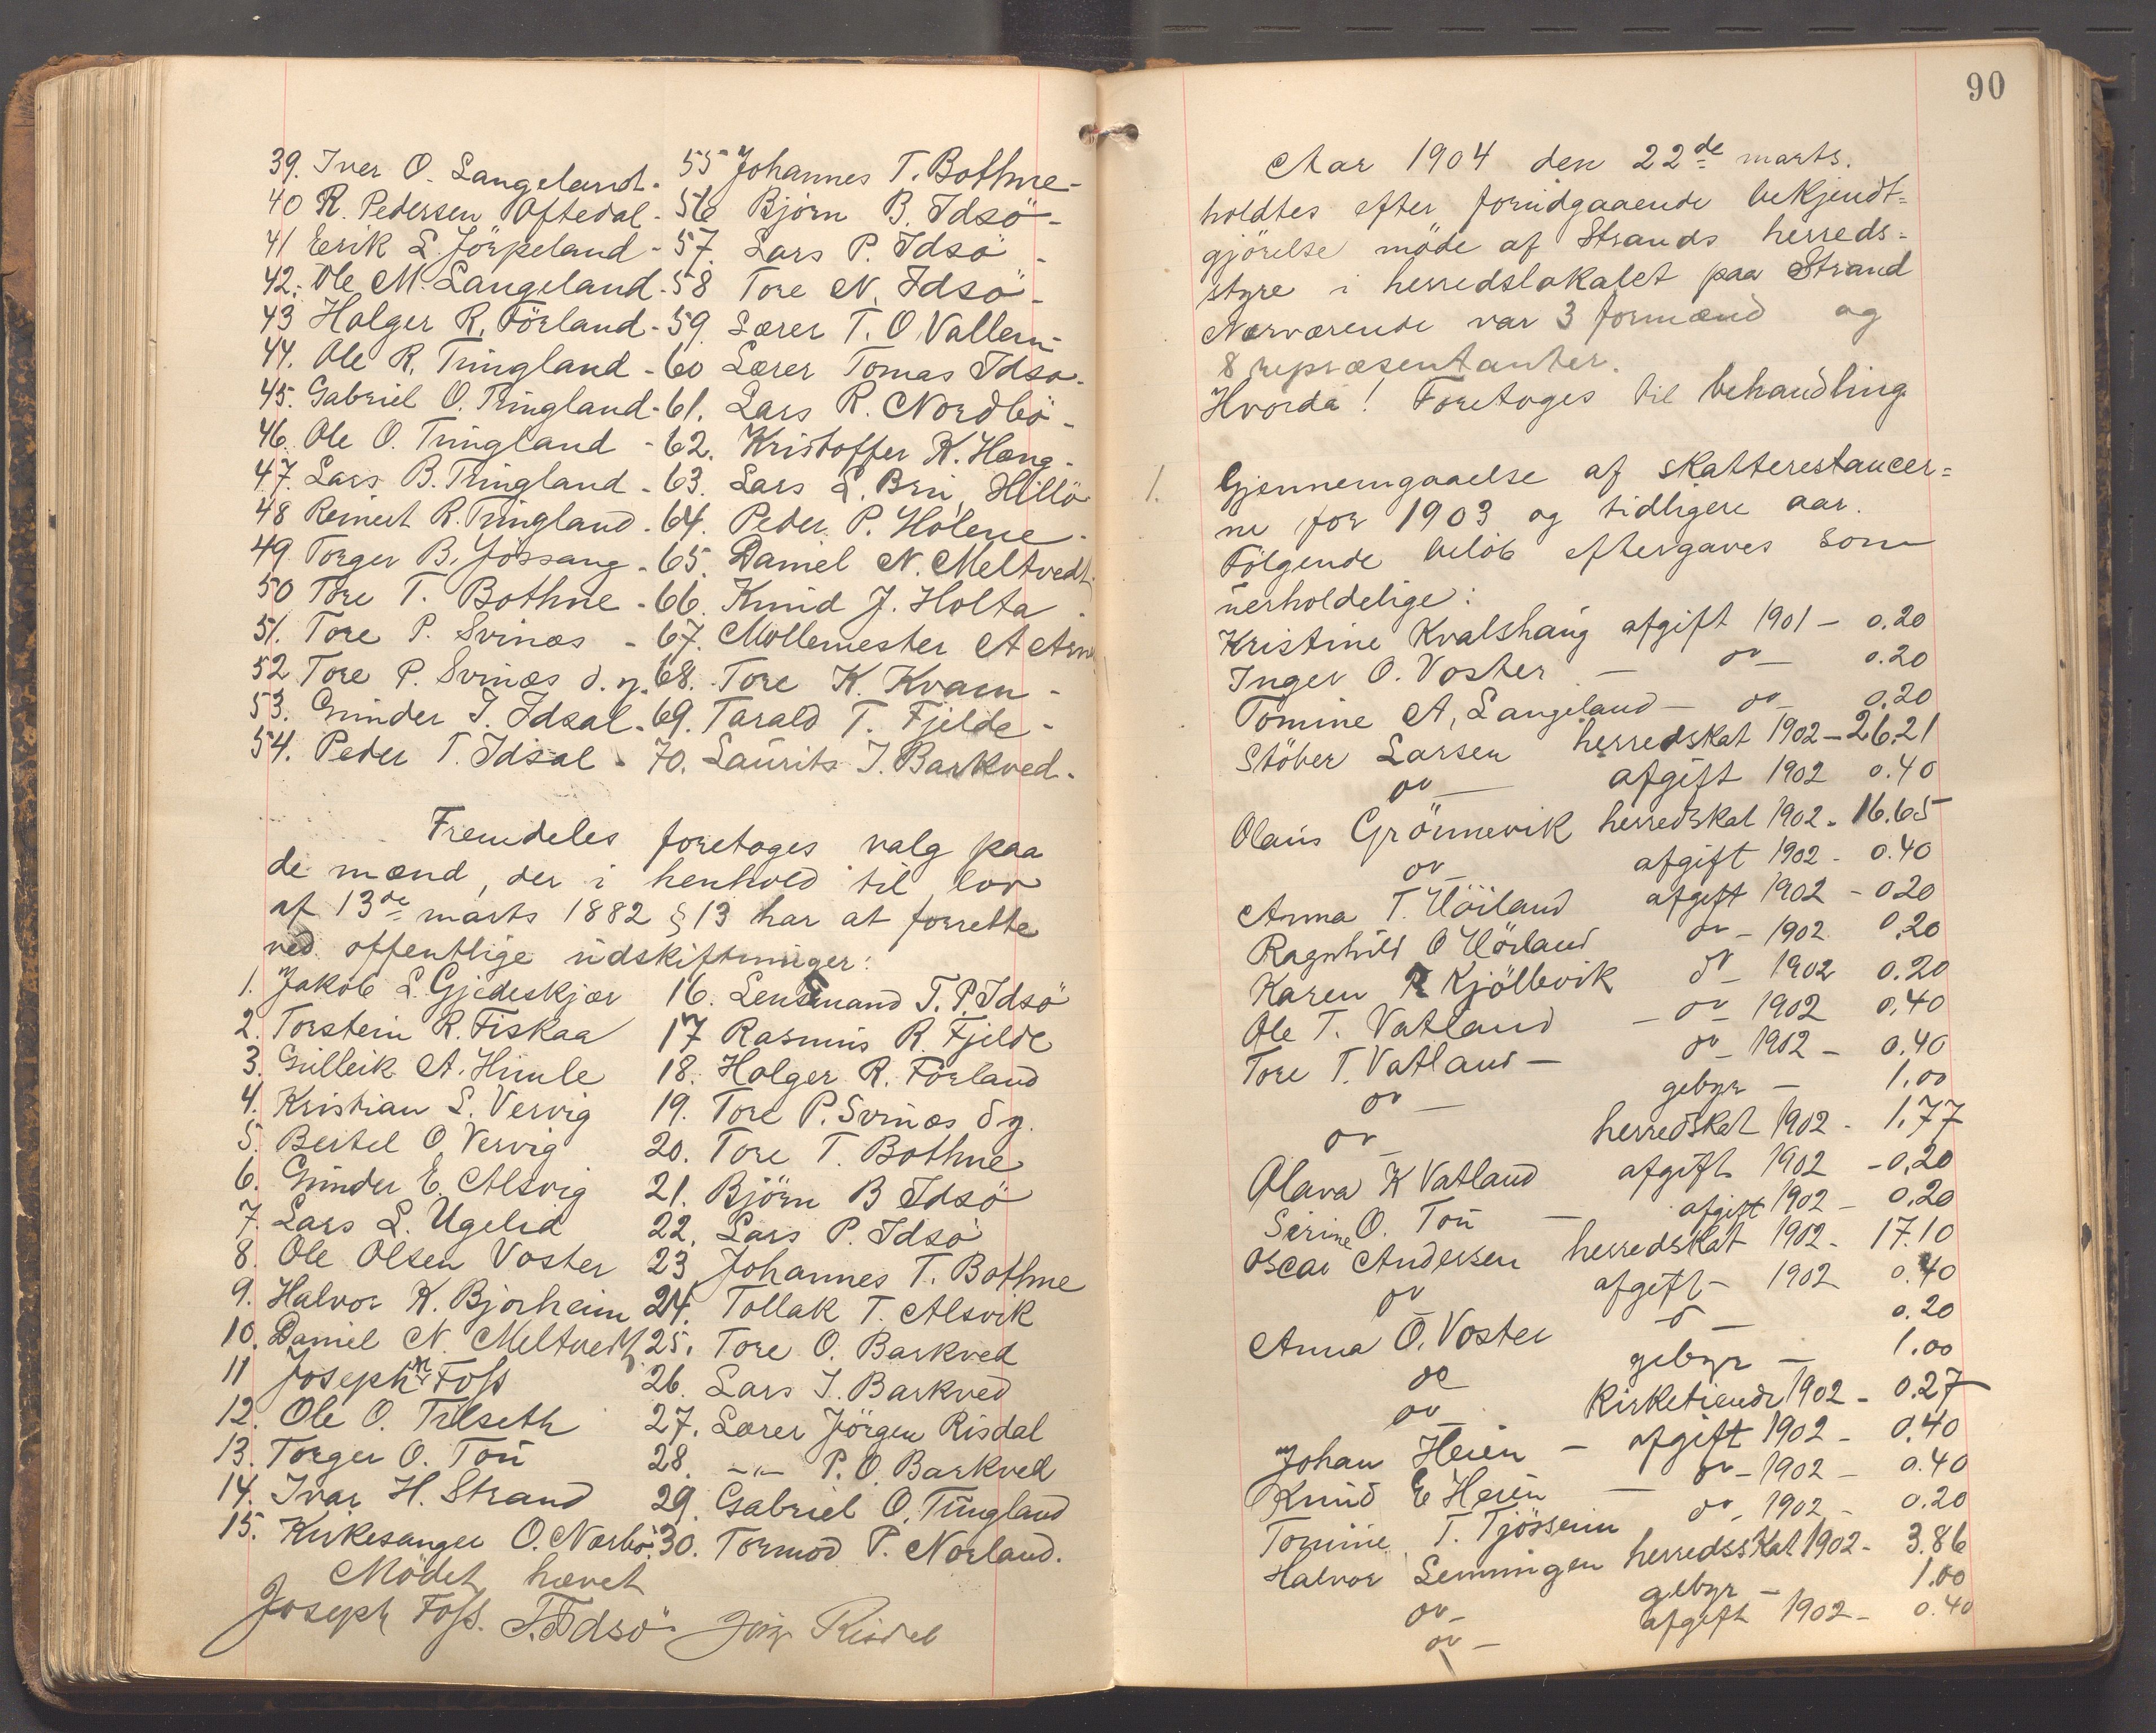 39. Iver O. Langeland. -
40 R. Pedersen Oftedal -
41 Eerik L. Jörpeland -
42. Ole M. Langeland -
43 Holger R. Förland -
44. Ole R. Tungland -
45. Gabriel O. Tungland -
46. Ole O. Tungland -
47. Lars B. Tungland -
48 Reinert R. Tungland -
49 Torger B. Jössang -
50 Tore T. Bothne -
51. Tore P. Svinæs -
52 Tore P. Svinæs d. y.
53. Gunder I. Idsal -
54. Peder T. Idsal -
55 Johannes T. Bothne -
56 Björn B. Idsö -
57. Lars P. Idsö -
58 Tore N. Idsö -
59. Lærer T. O. Vallem -
60 Lærer Tomas Idsø -
61. Lars R. Nordbö -
62. Kristoffer K. Haug -
63. Lars L. Bru, Hillö
64. Peder P. Holene -
65. Daniel N. Meltvedt
66. Knud J. Holta -
67. Möllemester A Arn
68. Tore K. Kvam -
69. Tarald T. Fjelde -
70. Laurits I. Barkved -
Fremdeles foretoges valg paa
de mænd, der i henhold til lov
af 13de marts 1882 § 13 har at forrette
ved offentlige udskiftninger:
1. Jakob L. Gjedeskjær
2. Torstein R. Fiskaa
3. Gulleik A. Himle
4. Kristian L. Vervig
5. Bertel O. Vervig
6. Gunder E. Alsvig
7. Lars L. Ugelid
8. Ole Olsen Voster
9. Halvor K. Bjørheim
10. Daniel N. Meltvedt
11 Joseph N. Foss
12. Ole O. Tilseth
13. Torger O. Tou
14. Ivar H. Strand
15. Kirkesanger O. Norbö
16. Lensmand T. P. Idsö
17 Rasmus R. Fjelde
18. Holger R. Förland
19. Tore P. Svinæs d y.
20. Tore T. Bothne
21. Björn B Idsö
22. Lars P. Idsö
23 Johannes T. Bothne
24. Tollak T. Alsvik
25. Tore O. Barkved
26. Lars I. Barkved
27. Lærer Jörgen Risdal
28. -"- P. O. Barkved
29. Gabriel O. Tungland
30. Tormod P. Norland.
Mödet hævet
Joseph Foss. T. Idsö Jörg Risdal
90
Aar 1904 den 22de marts.
holdtes efter forudgaaende bekjendt=
gjörelse möde af Strands herreds=
styre i herredslokalet paa Strand
Nærværende var 3 formænd og
8 repræsentanter.
Hvorda! Foretoges til behandling
1. Gjennemgaaelse af skatterestancer=
ne for 1903 og tidligere aar.
Fölgende belöb eftergaves som
uerholdelige:
Kristine Kvalshaug afgift 1901 - 0.20
Inger O. Voster - do - 0.20
Tomine A. Langeland - do - 0.20
Stöver Larsen herredskat 1902 - 26.21
do - afgift 1902 0.40
Olaus Grönnevik herredskat 1902 - 16.65
do - afgift 1902 - 0.40
Anna T. Höiland afgift 1902 - 0 20
Ragnhild O Hörland do - 1902 0.20
Karen R Kjöllevik do - 1902 0.20
Ole T. Vatland - do - 1902 0.40
Tore T. Vatland - do - 1902 - 0.40
do - gebyr - 1.00
do - herredskat 1902 - 1.77
Olava K Vatland afgift 1902 - 0.20
Serine O. Tou - afgift 1902 - 0.20
Oscar Andersen herredskat 1902 - 17.10
do afgift - 1902 0.40
Anna O. Voster - do - 0.20
do gebyr - 1.00
do Kirketiende 1902 - 0.27
Johan Heien - afgift 1902 - 0.40
Knud E Heien - do - 1902 - 0.40
Tomine T. Tjössem do - 1902 - 0.20
Halvor Lemmingen herredsskat 1902 - 3.86
do - gebyr - 1.00
do - afgift 1902 - 0.40